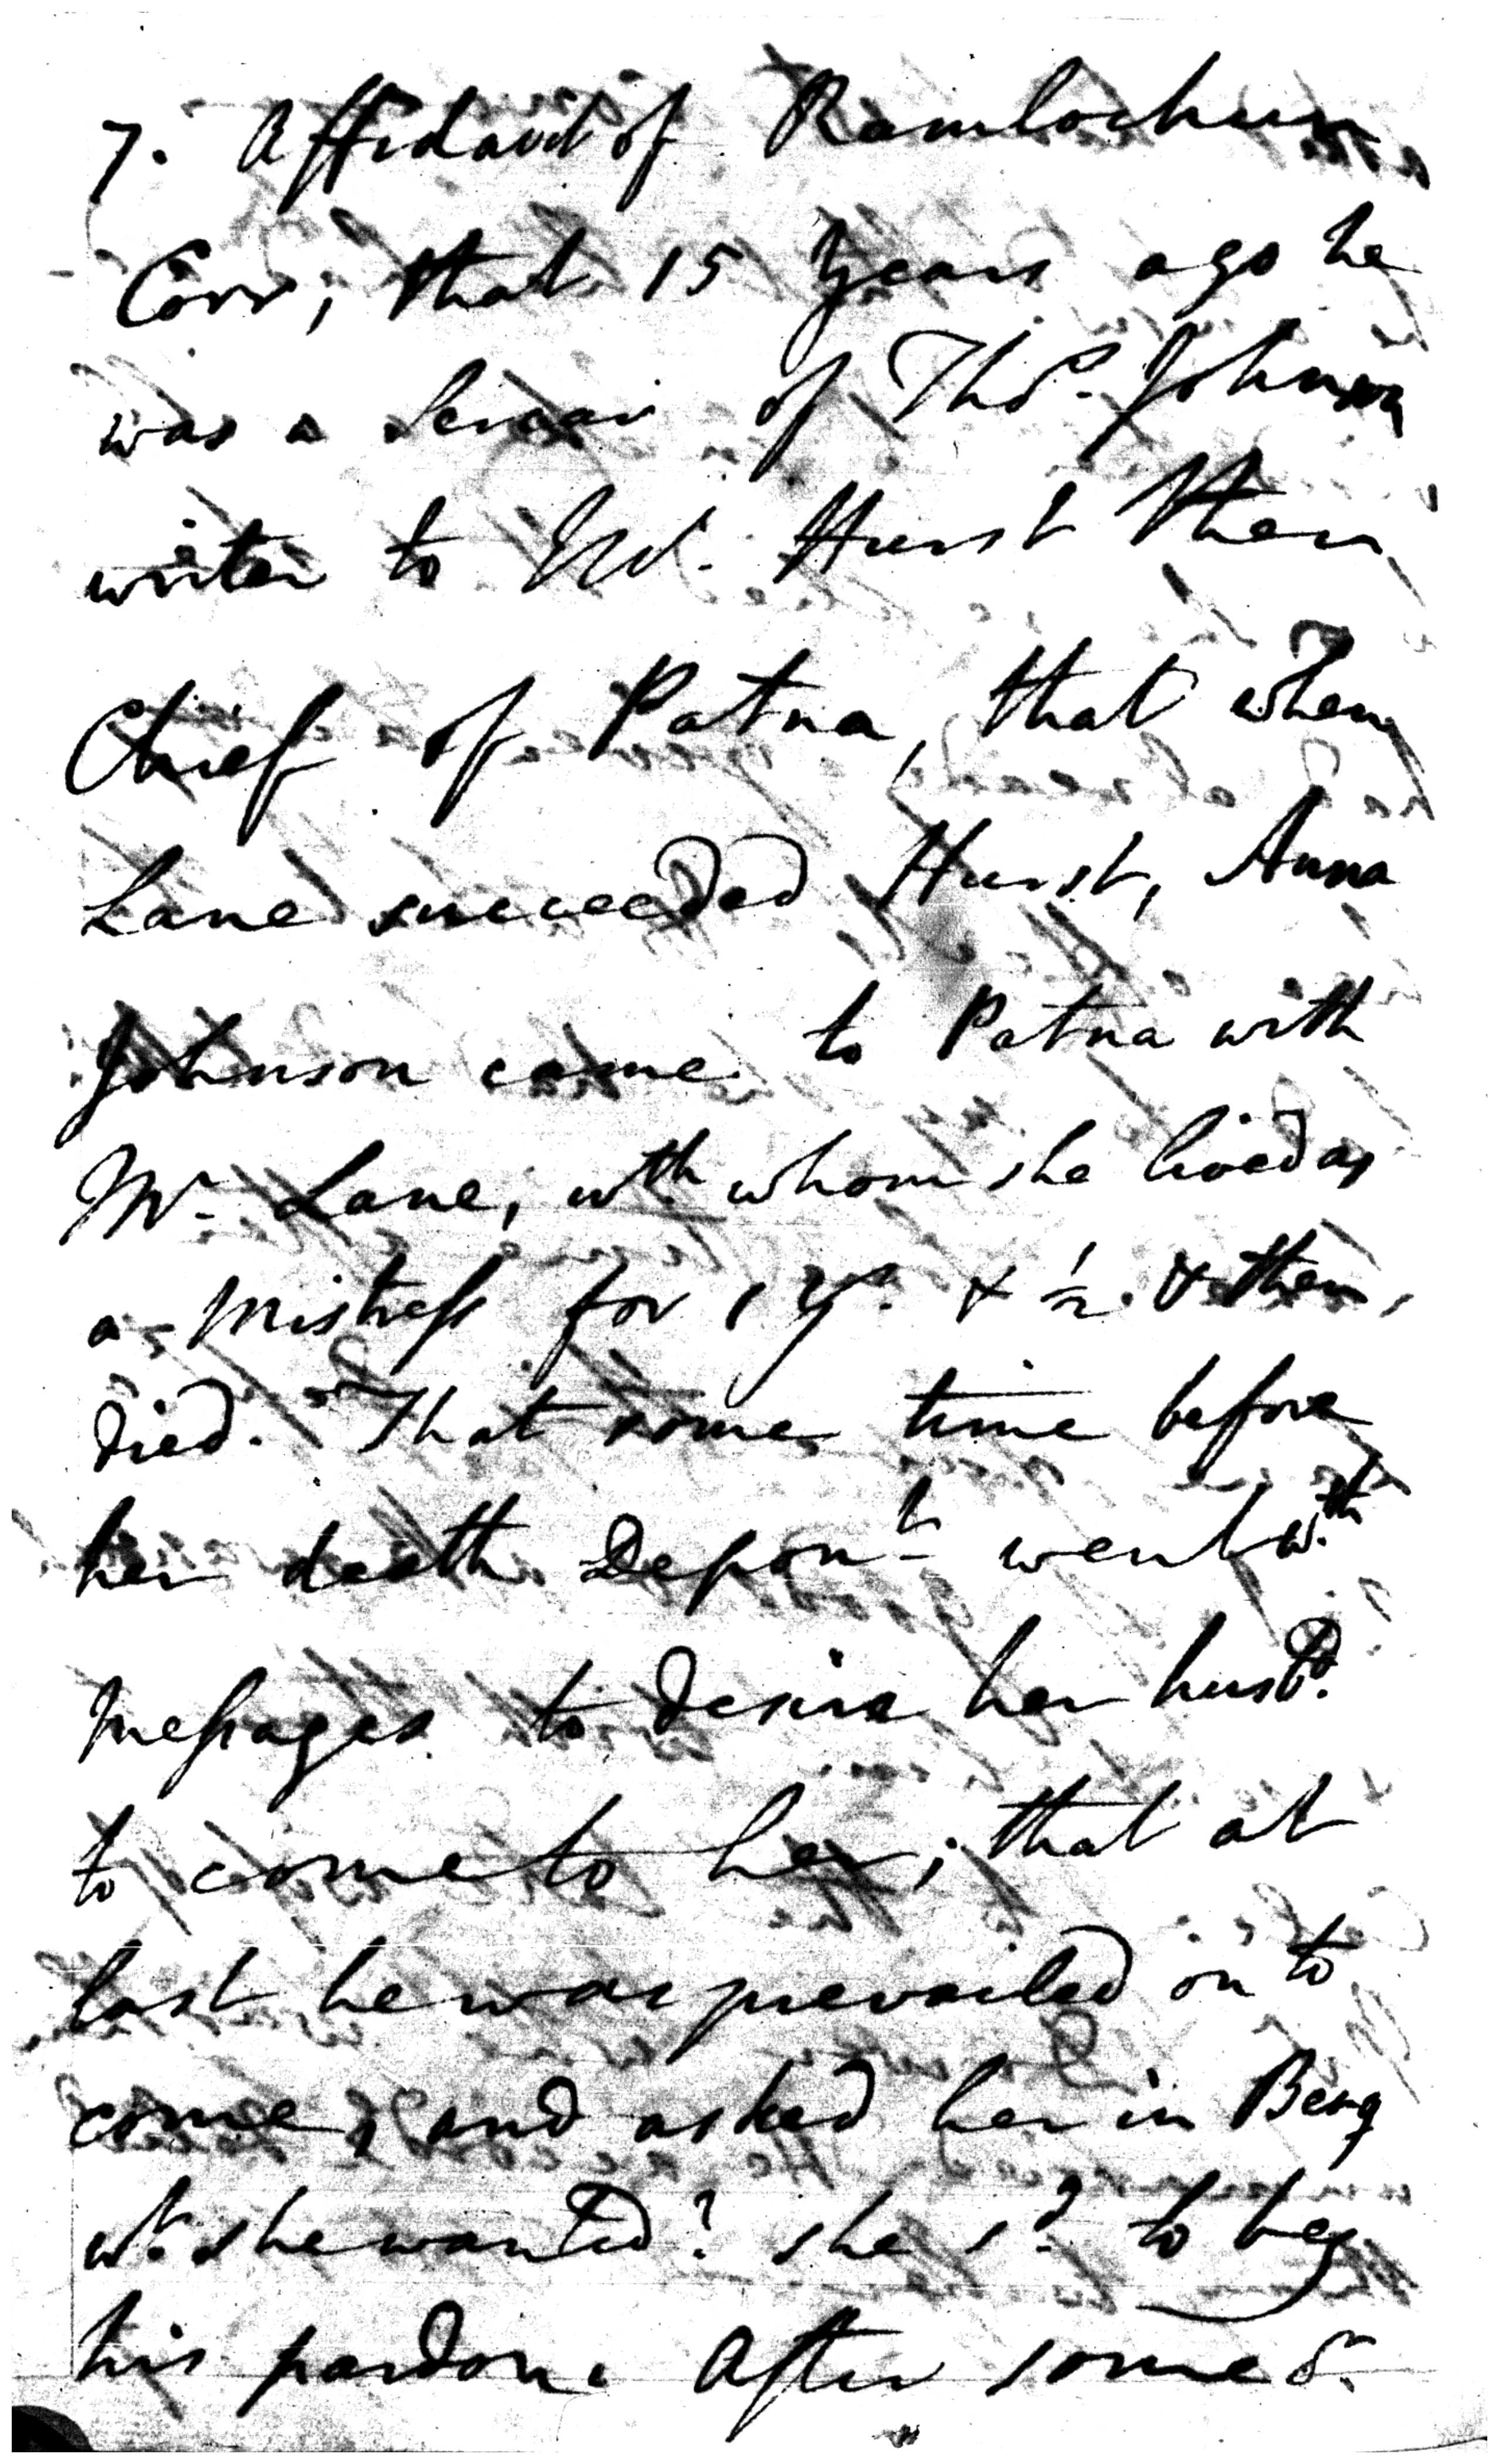 7. Affidavit of Ramlochun
Corr, that 15 years ago he
was a Sercar of Thos. Johnson
writer to Hurst then
Chief of Patna, that when
Lane succeeded Hurst, Anna
Johnson came to Patna with
Mr. Lane, wth whom she lived as
a Mistress for 1 yr. & ½. & then
died. That some time before
her death Depont went wth
Messages to desire her husbd.
to come to her; that at
last he was prevailed on to
come, and asked her in Beng
wt. she wanted? she sd. to beg
his pardon. After some